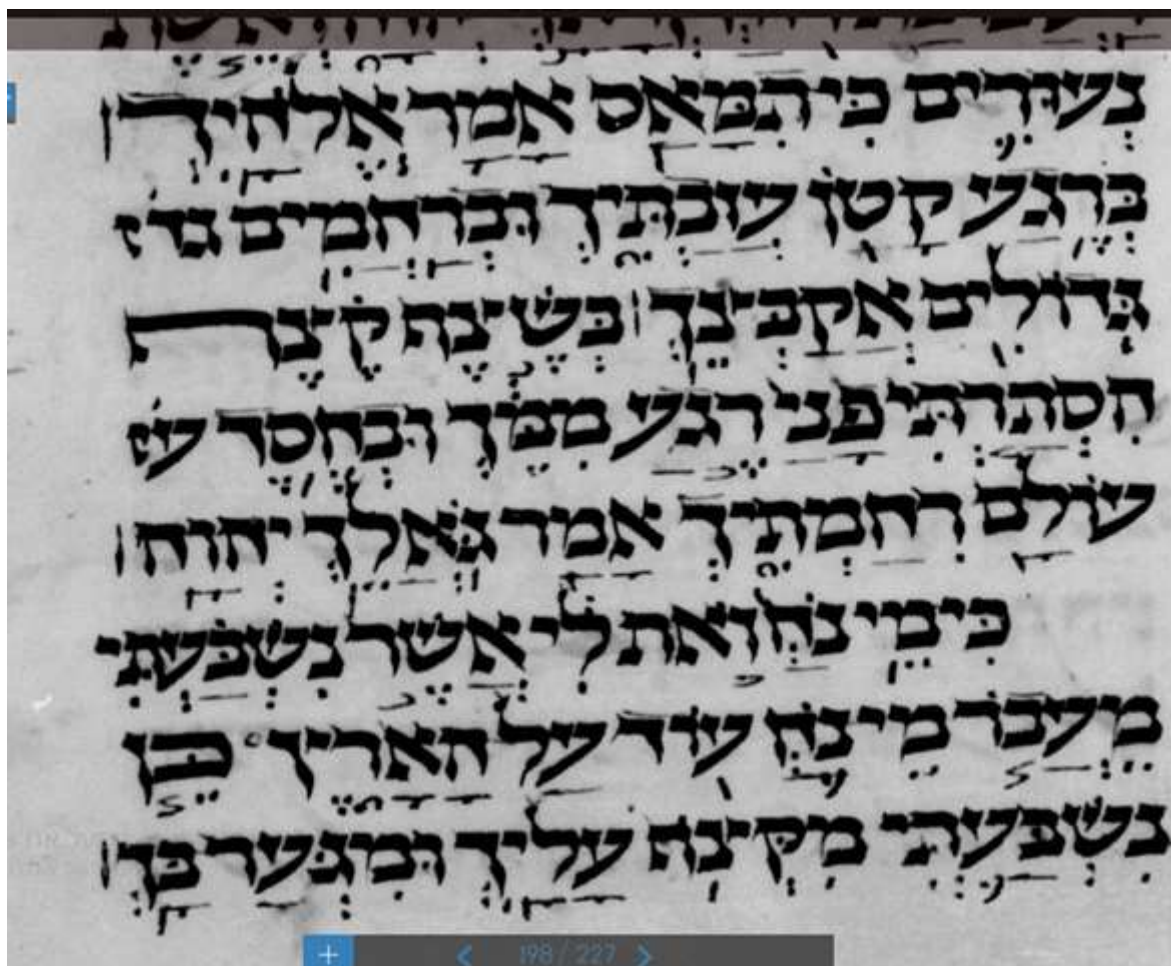 נְעוּרִים כִּי תִמָּאֵס אָמַר אֱלֹהָיִךְ
בְּרֶגַע קָטֹן עֲזַבְתִּיךְ וּבְרַחֲמִים גדו
גְּדוֹלִים אֲקַבְּצֵךְ בְּשֶׁצֶף קֶצֶף
הִסְתַּרְתִּי פָנַי רֶגַע מִמֵּךְ וּבְחֶסֶד עו
עוֹלָם רִחַמְתִּיךְ אָמַר גֹּאֲלֵךְ יְהוָה
כִּי מֵי נֹחַ זֹאת לִי אֲשֶׁר נִשְׁבַּעְתִּי
מֵעֲבֹר מֵי נֹחַ עוֹד עַל הָאָרֶץ כֵּן
נִשְׁבַּעְתִּי מִקְּצֹף עָלַיִךְ וּמִגְּעָר בָּךְ
+ < 198 / 227 >